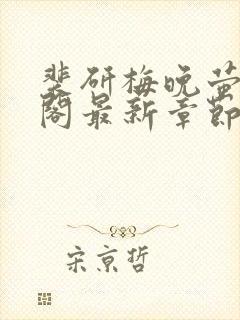 裴研梅晚萤
阁最新章节
宋京哲